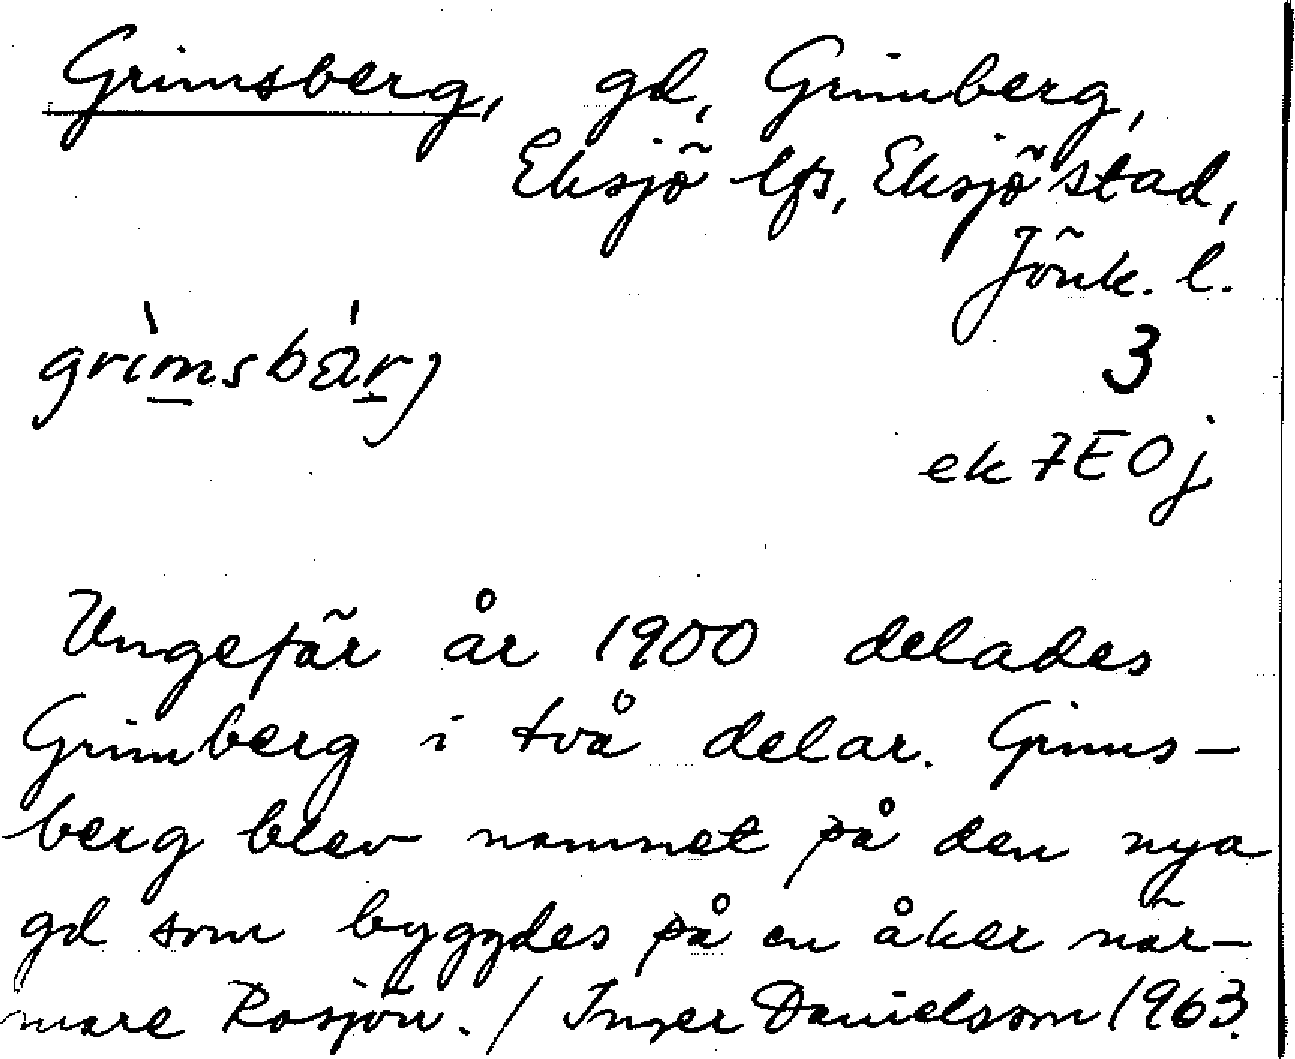 Grimsberg, gd, Grimberg,
Eksjö lfs, Eksjö stad,
Jönk. l.
grìmsbárj
3
ek 7E0j
Ungefär år 1900 delades
Grimberg i två delar. Grims-
berg blev namnet på den nya
gd som byggdes på en åker när-
mare Rosjön. / Inger Danielsson 1963.